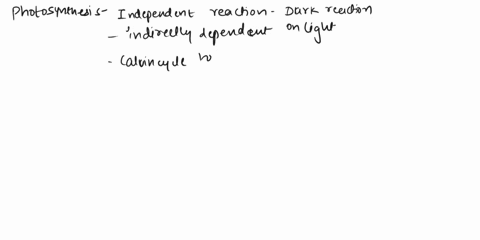 Photosynthesis- Independent reaction - Dark reaction
- indirectly dependent on light
- Calvin cycle